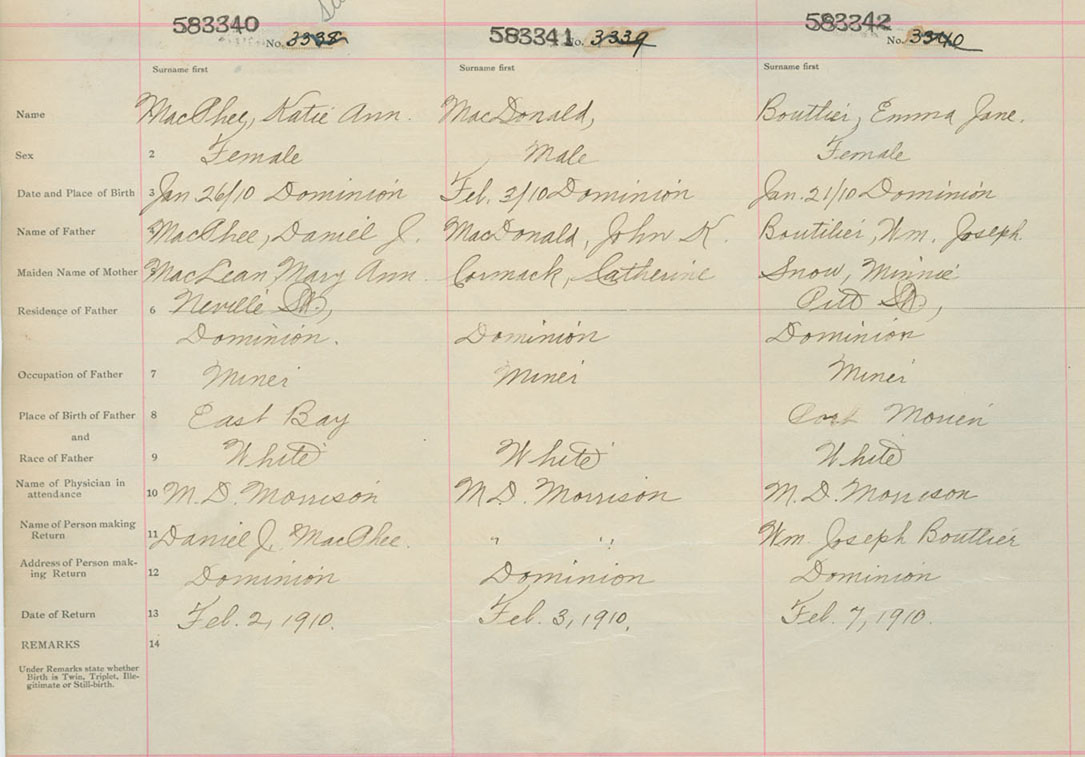 583340 583341 583342
No. 3338 No. 3339 No. 3340
Surname first Surname first Surname first
Name MacPhee, Katie Ann. MacDonald, Bouttier, Emma Jane.
Sex 2 Female Male Female
Date and Place of Birth 3 Jan. 26/10 Dominion Feb. 3/10 Dominion Jan. 21/10 Dominion
Name of Father 4 MacPhee, Daniel J. MacDonald, John K. Boutilier, Wm. Joseph.
Maiden Name of Mother MacLean Mary Ann. Cormack, Catherine Snow, Minnie
Residence of Father 6 Neville St., Pitt St.,
Dominion. Dominion Dominion
Occupation of Father 7 Miner Miner Miner
Place of Birth of Father 8 East Bay Port Morien
and
Race of Father 9 White White White
Name of Physician in
attendance 10 M. D. Morrison M. D. Morrison M. D. Morrison
Name of Person making
Return 11 Daniel J. MacPhee. " " Wm. Joseph Bouttier
Address of Person mak-
ing Return 12 Dominion Dominion Dominion
Date of Return 13 Feb. 2, 1910. Feb. 3, 1910. Feb. 7, 1910.
REMARKS 14
Under Remarks state whether
Birth is Twin, Triplet, Ille-
gitimate or Still-birth.